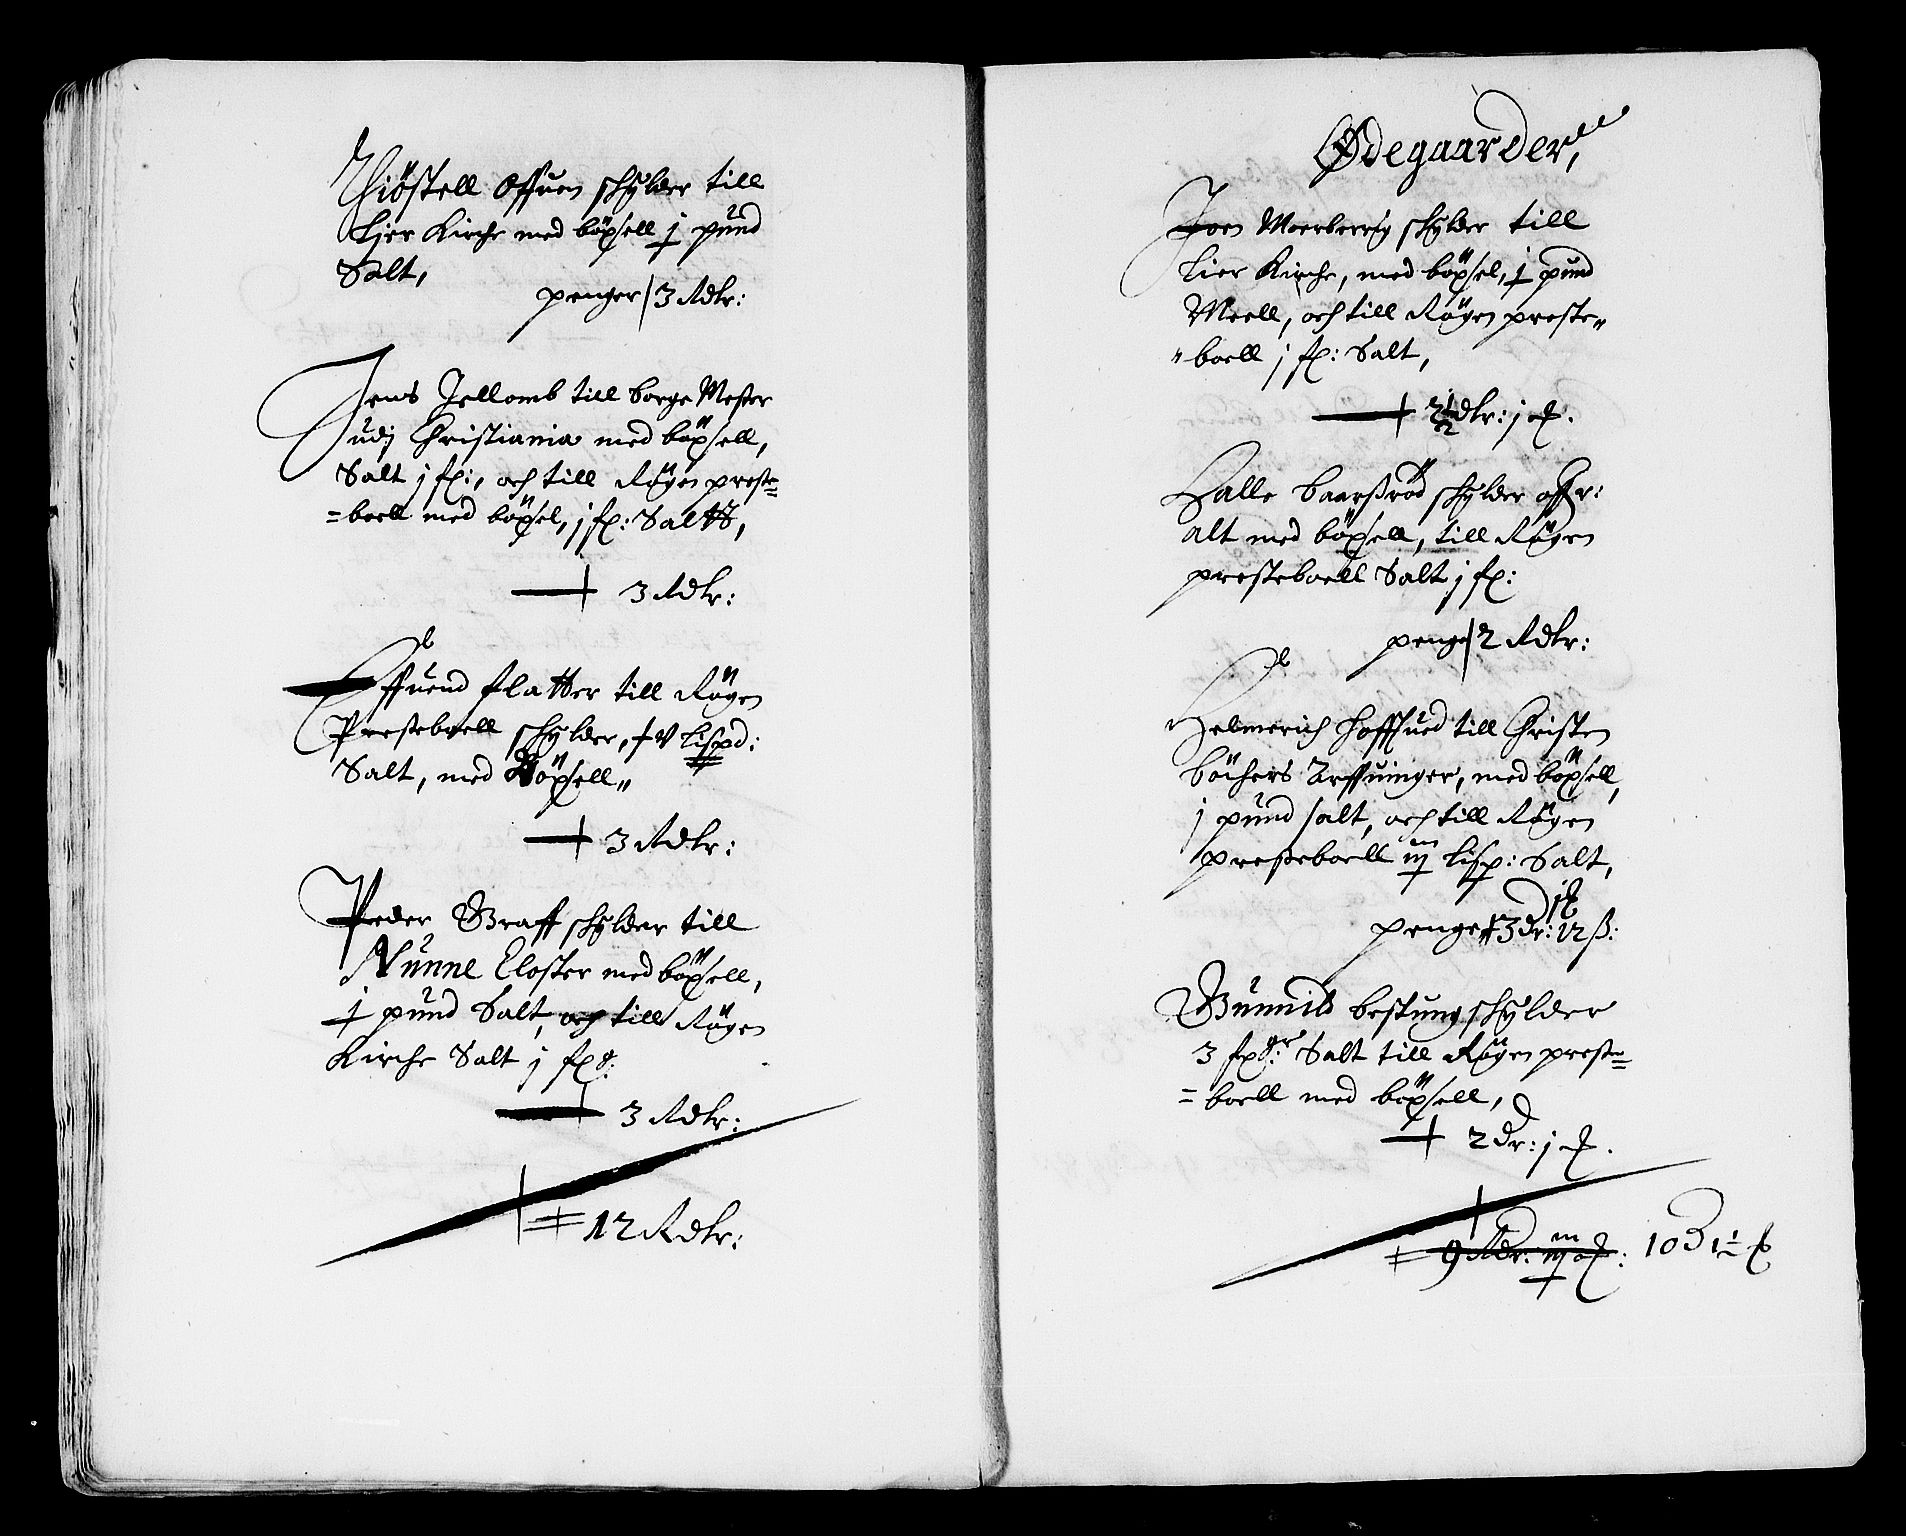 Thiöstell Offuen schylder till
Lier Kirche med böxsell j pund
Salt,
penger 3 Rdlr:
Jens Jellomb till borge Mester
udj Christiania med böxsell,
Salt j fx:, och till Rögen preste=
=boell med böxsel, j fx: Saltt,
3 Rdlr:
Effuend Flatter till Rögen
Presteboell schylder, V Lispd:
Salt, med Böxsell"
3 Rdlr:
Peder Graff schylder till
Nunne Closter med böxsell,
j pund Salt, och till Rögen
Kirche Salt j fx:
3 Rdlr:
= 12 Rdlr:
Ødegaarder,
Joen Moerberrig schylder till
Lier Kirche, med böxsel, j pund
Meell, och till Rögen preste"
"boell j fx: Salt,
2½ dlr: j
Halle baarßrød schylder
alt med böxsell, till Rögen
presteboell Salt j fx:
penge 2 Rdlr:
Helmerich Hoffsued till Christen
böchers Arffuinger, med böxsell,
j pund salt, och till Rögen
presteboell iij lisp: Salt,
penger 3 dr: 12 ß:
Gunnild bestung schylder
3 fxr: Salt till Rögen preste=
=boell med böxsell,
2 dr: j
= 9 Rdr: iij : 10 D 1½